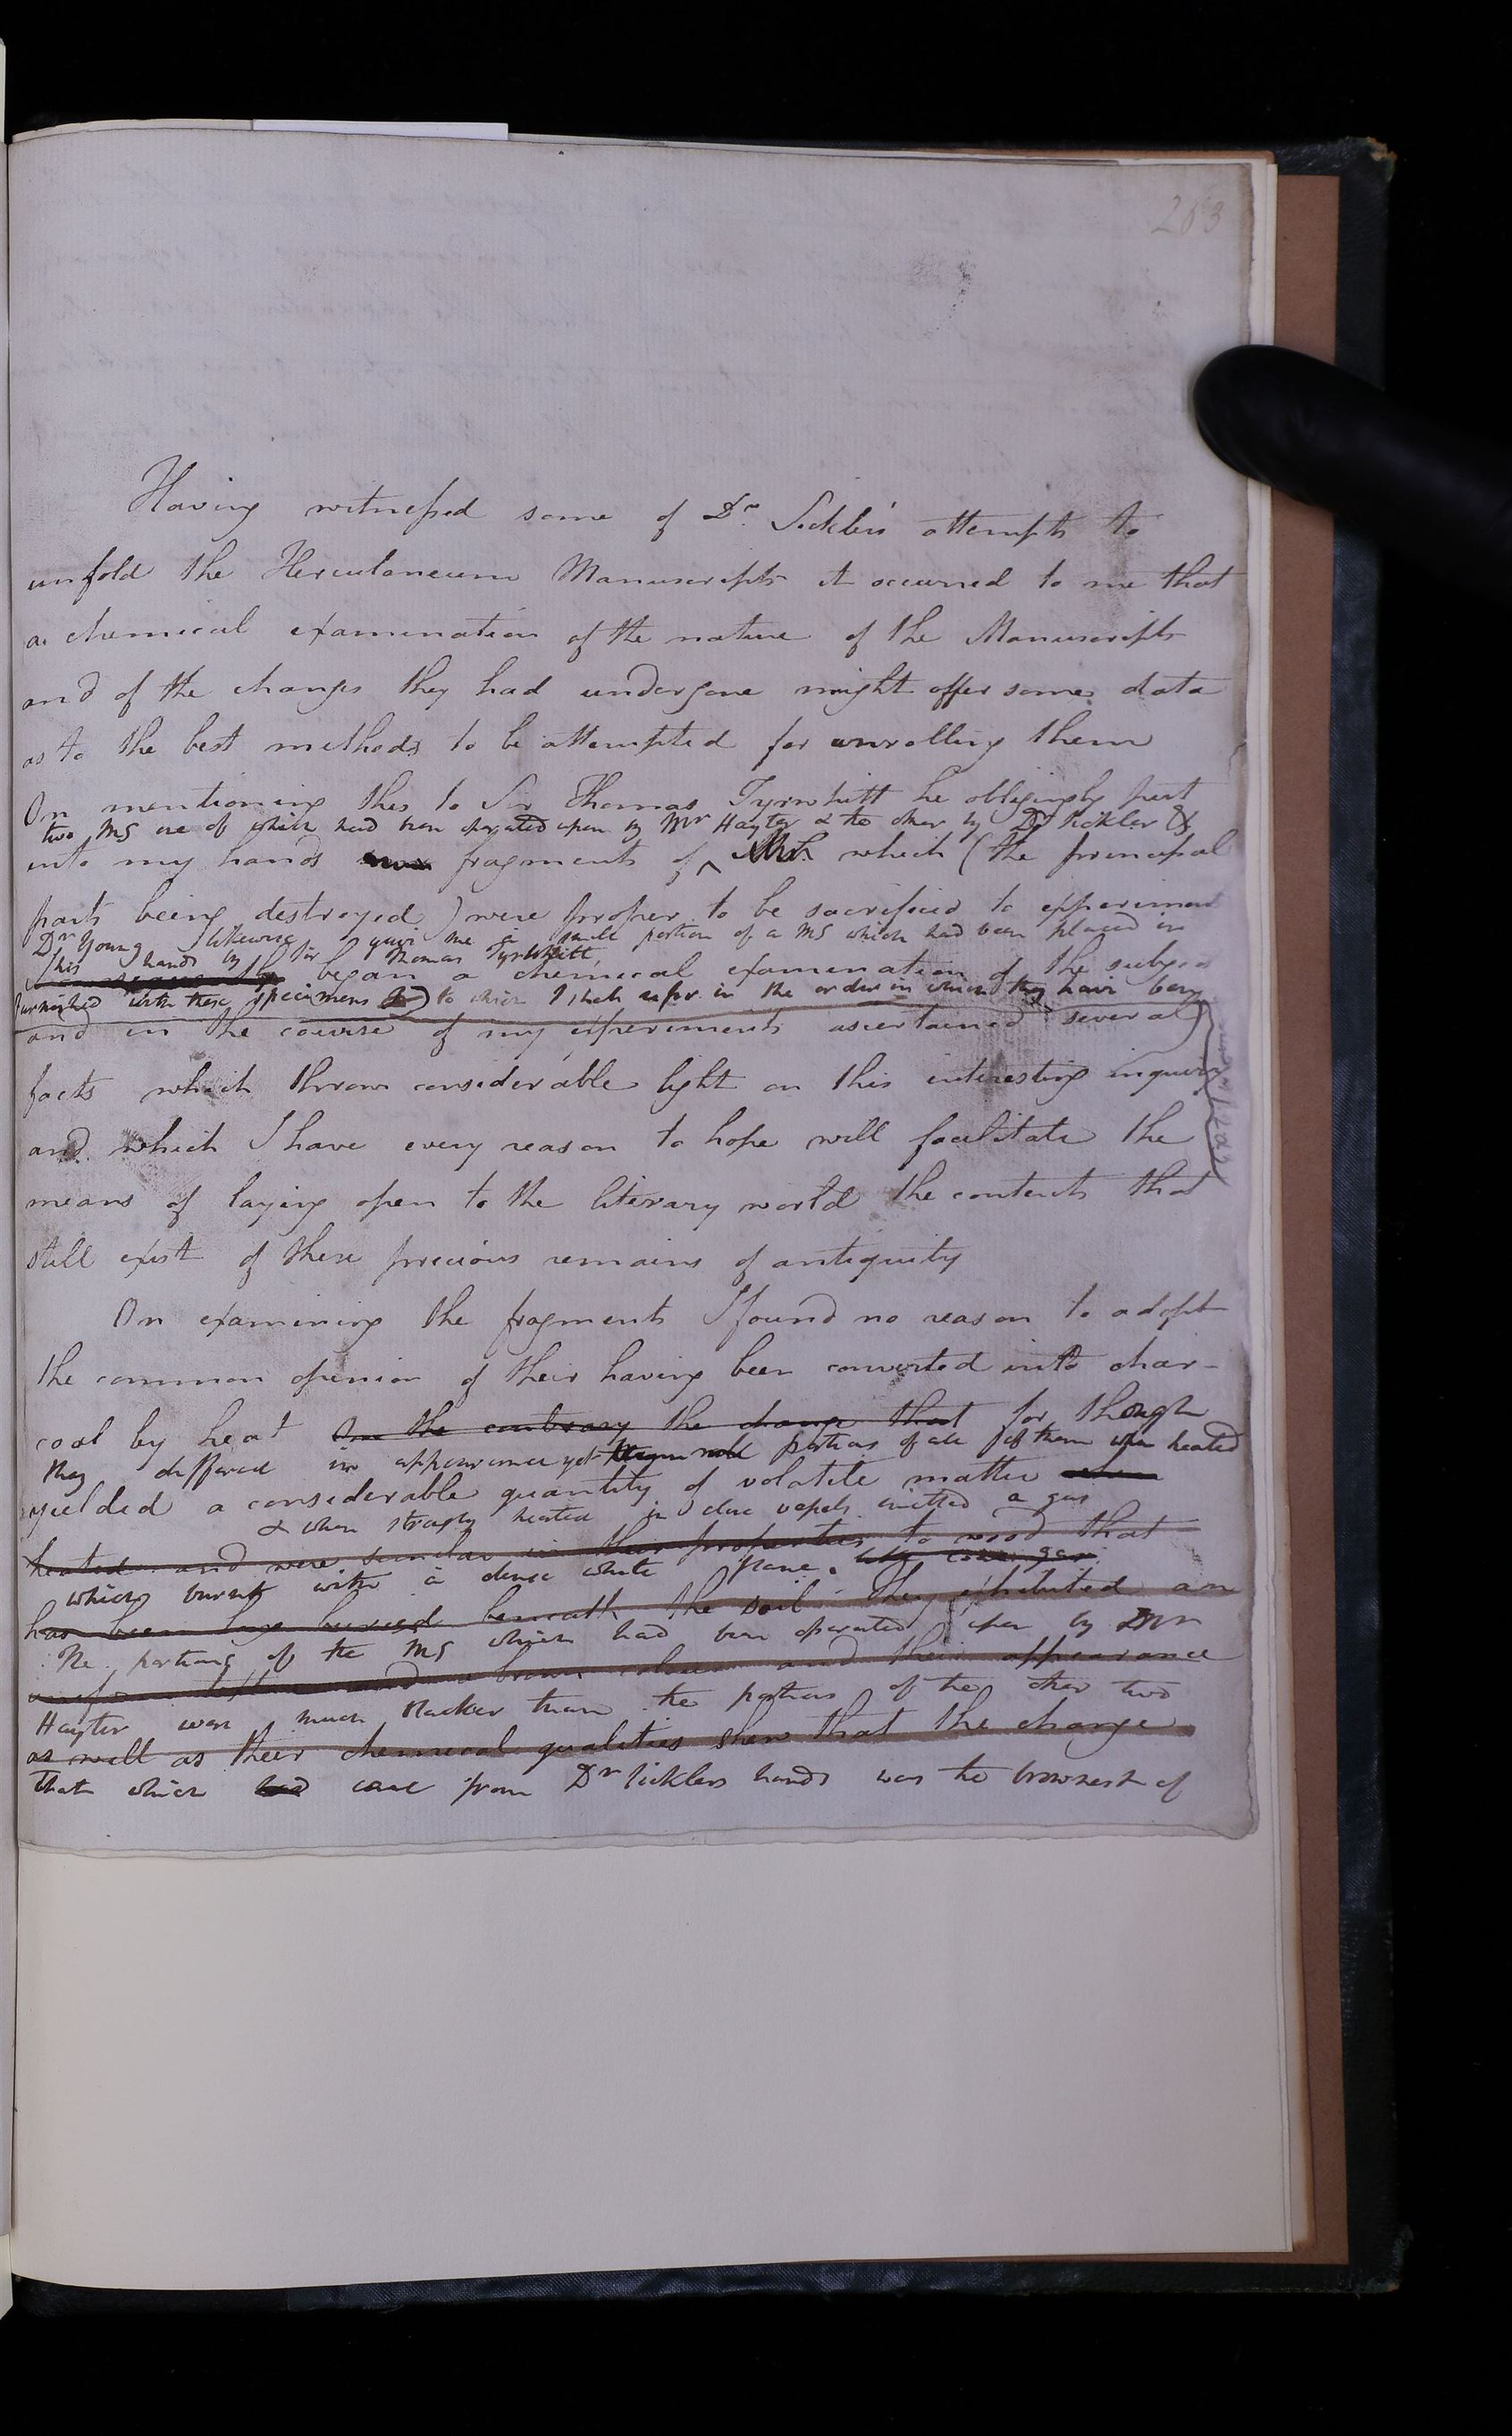 203
Having witnessed some of Dr. Sickler's attempts to
unfold the Herculaneum Manuscripts it occurred to me that
a chemical examination of the nature of the Manuscripts
and of the changes they had undergone might offer some data
as to the best methods to be attempted for unrolling them
On mentioning this to Sir Thomas Tyrwhitt he obligingly put
two MS one of which had been operated upon by Mr Hayter & the other by Dr Sickler &
into my hands fragments of ^ which (the principal
parts being destroyed) were proper to be sacrificed to experiment
Dr Young likewise gave me a small portion of a MS which had been placed in
his hands by Sir Thomas Tyrwhitt,
began a chemical examination of the subject
furnished with these specimens to which I shall refer in the order in which they have been
and in the course of my experiments ascertained several
facts which throw considerable light on this interesting inquiry
and which I have every reason to hope will facilitate the
means of laying open to the literary world the contents that
still exist of these precious remains of antiquity
On examining the fragments I found no reason to adopt
the common opinion of their having been converted into char-
coal by heat On the contrary the change that for though
they differed in appearance yet portions of all of them when heated
yielded a considerable quantity of volatile matter when
& when strongly heated in close vessels emitted a gas
heated and were similar in their properties to wood that
which burnt with a dense white flame. like coal gas
has been long buried beneath the soil They exhibited an
The portions of the MS which had been operated upon by Mr
uniform texture and a brown colour and their appearance
Hayter was much blacker than the portions of the other two
as well as their chemical qualities shew that the change
that which had came from Dr Sicklers hands was the brownest of